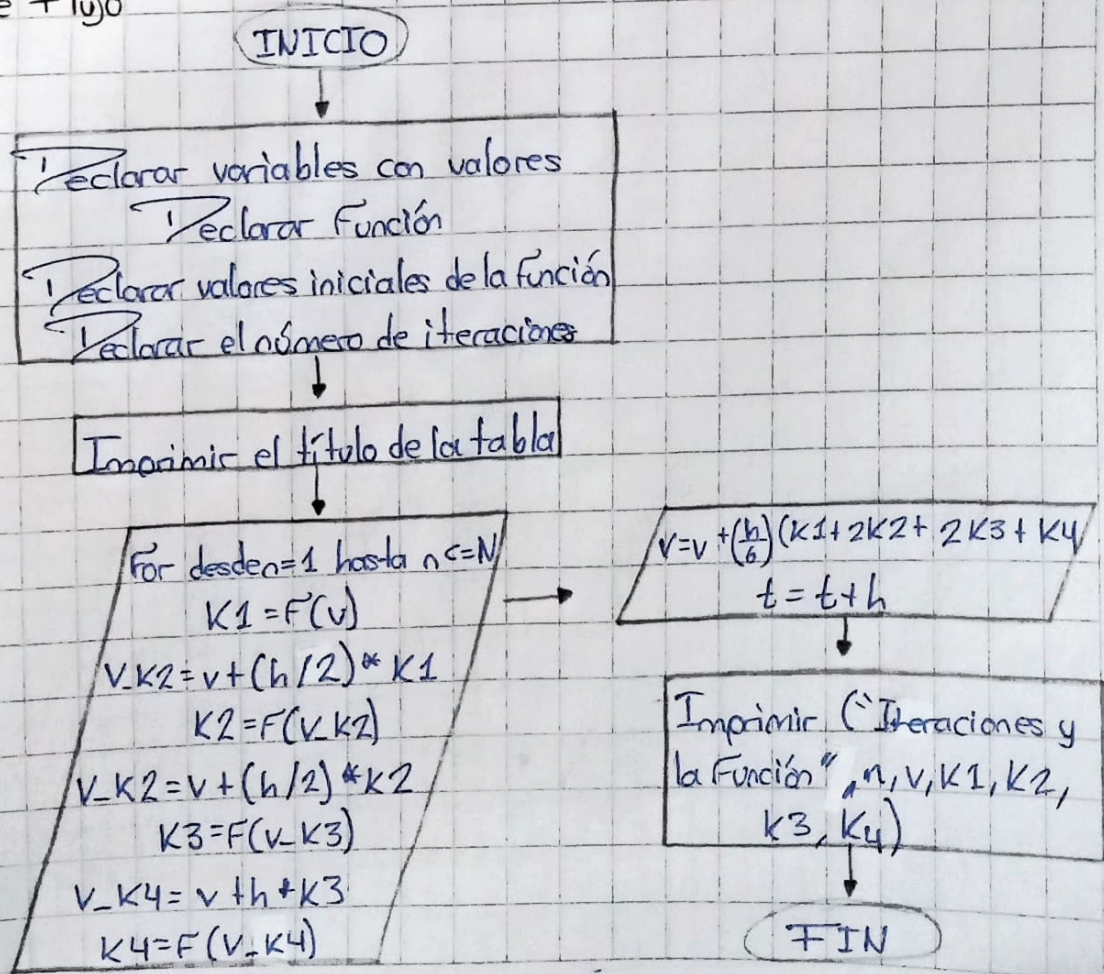 INICIO
Declarar variables con valores
Declarar Función
Declarar valores iniciales de la función
Declarar el número de iteraciones
Imprimir el título de la tabla
For desde n=1 hasta n<=N
K1=F(v)
V_K2=v+(h/2)*K1
K2=F(V_K2)
V_K2=v+(h/2)*K2
K3=F(v_K3)
V_K4=v+h*K3
K4=F(V_K4)
V=v+(h/6)(K1+2K2+2K3+K4
t=t+h
Imprimir ("Iteraciones y
la Función",n,v,K1,K2,
K3,K4)
FIN